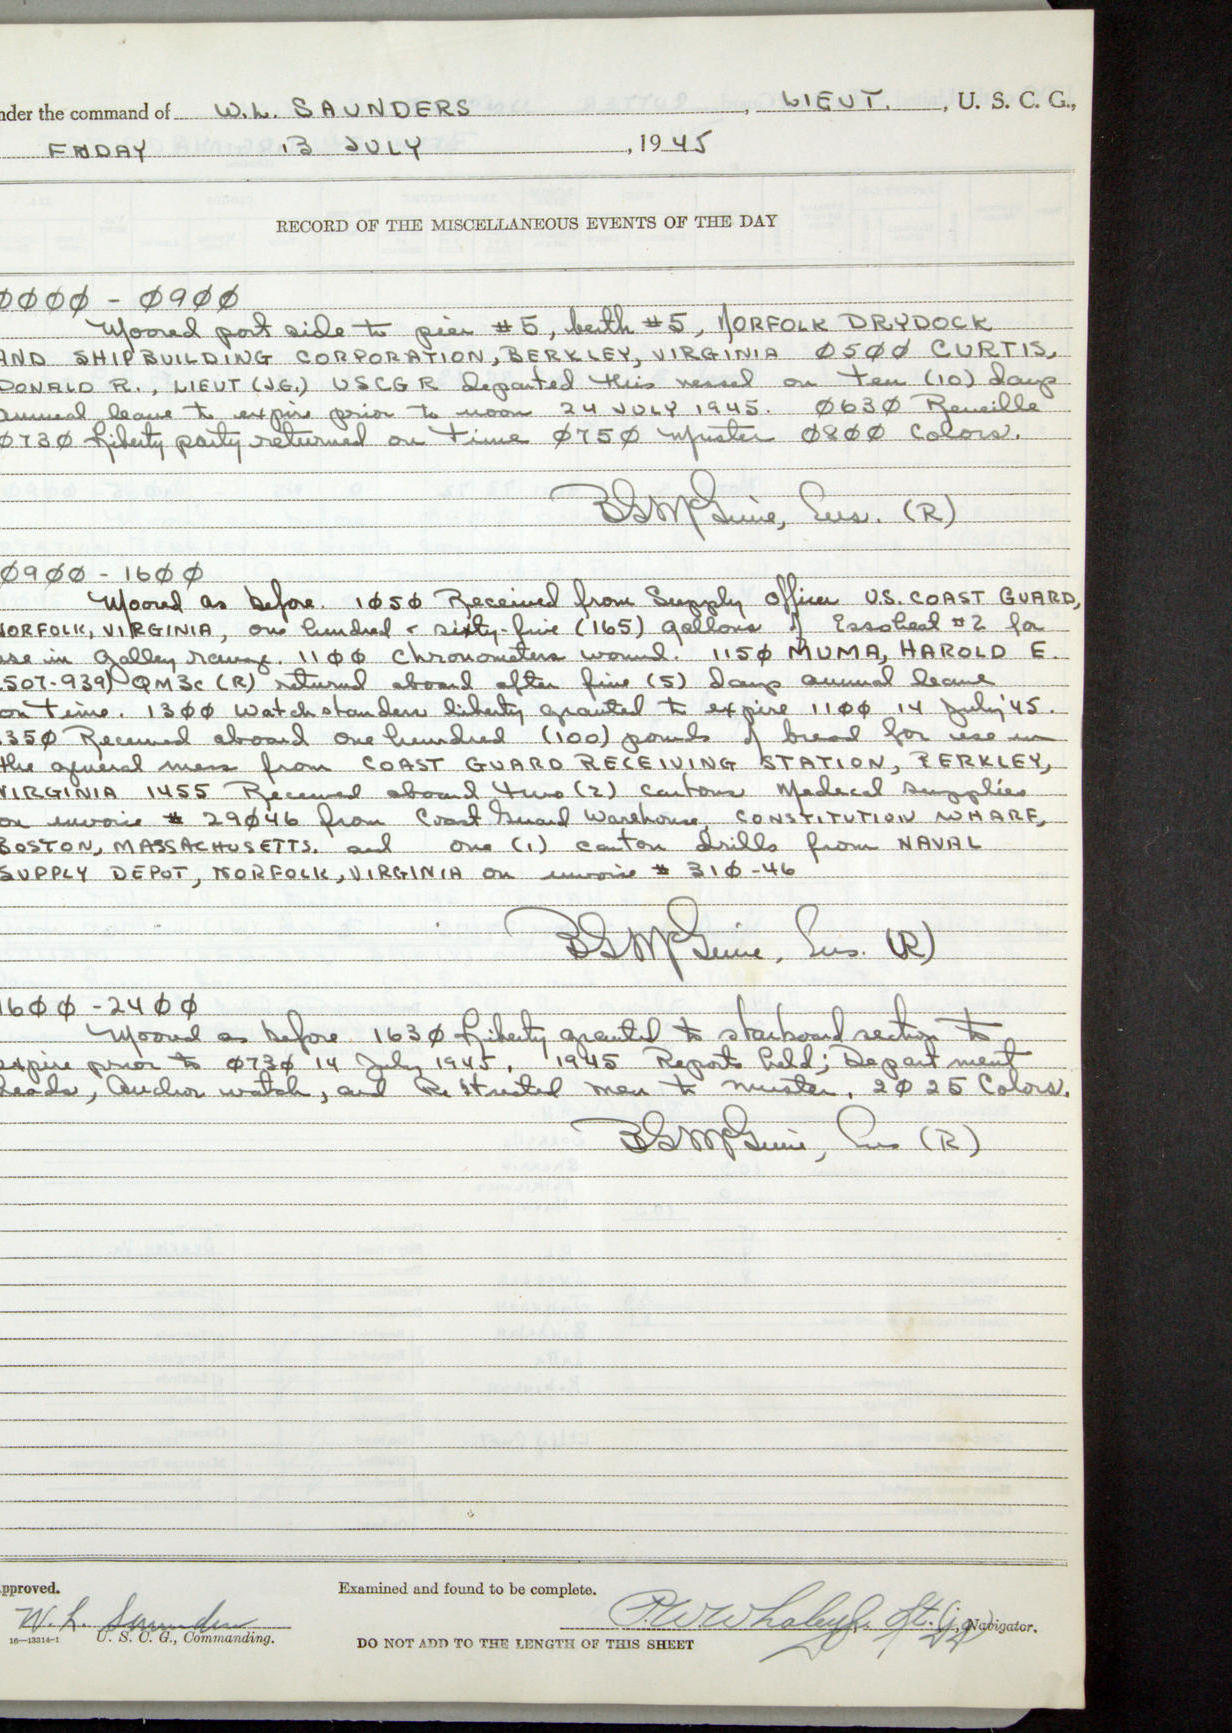 nder the command of W.L. SAUNDERS, LIEUT., U. S. C. G.,
FRIDAY 13 JULY, 1945
RECORD OF THE MISCELLANEOUS EVENTS OF THE DAY
0000 - 0900
Moored port side to pier #5, berth #5, NORFOLK DRYDOCK
AND SHIPBUILDING CORPORATION, BERKLEY, VIRGINIA 0500 CURTIS,
DONALD R., LIEUT (J.G.) USCGR departed this vessel on Ten (10) days
annual leave to expire prior to noon 24 JULY 1945. 0630 Reveille
0730 Liberty party returned on time 0750 Muster 0800 Colors.
BG McGuire, Ens. (R)
0900 - 1600
Moored as before. 1050 Received from Supply Officer U.S. COAST GUARD,
NORFOLK, VIRGINIA, one hundred & sixty-five (165) gallons of Essoheat #2 for
use in galley range. 1100 Chronometers wound. 1150 MUMA, HAROLD E.
507-939) QM3c (R) returned aboard after five (5) days annual leave
on time. 1300 Watchstanders liberty granted to expire 1100 14 July '45.
1350 Received aboard one hundred (100) pounds of bread for use in
the general mess from COAST GUARD RECEIVING STATION, BERKLEY,
VIRGINIA 1455 Received aboard two (2) cartons Medical supplies
on invoice # 29046 from Coast Guard Warehouse, CONSTITUTION WHARF,
BOSTON, MASSACHUSETTS. and one (1) carton drills from NAVAL
SUPPLY DEPOT, NORFOLK, VIRGINIA on invoice # 310-46
BG McGuire, Ens. (R)
1600 - 2400
Moored as before 1630 Liberty granted to starboard section to
expire prior to 0730 14 July 1945. 1945 Reports held; Department
heads, Anchor watch, and Restricted men to muster. 2025 Colors.
BG McGuire, Ens (R)
pproved.
Examined and found to be complete.
W. L. Saunders
P.W. Whaley Jr. Lt. (jg), Navigator.
16—13314-1 U. S. C. G., Commanding.
DO NOT ADD TO THE LENGTH OF THIS SHEET